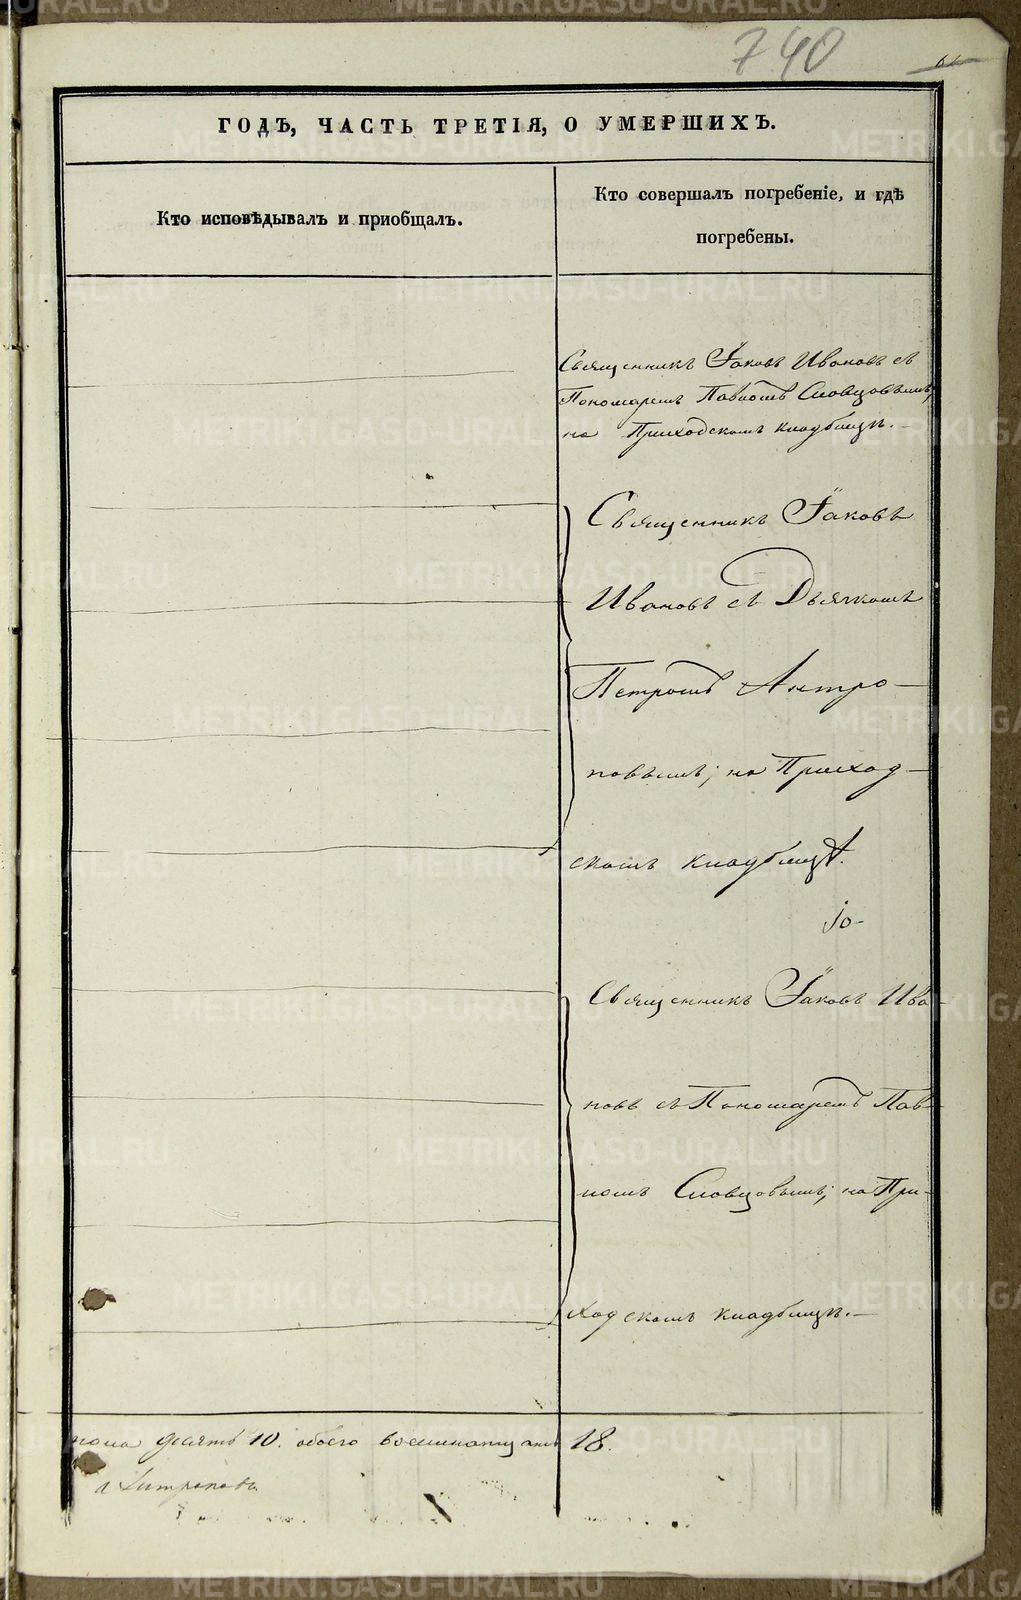 740
ГОДЪ, ЧАСТЬ ТРЕТІЯ, О УМЕРШИХЪ.
Кто исповѣдывалъ и приобщалъ.
Кто совершалъ погребеніе, и гдѣ
погребены.
Священникъ Іаковъ Ивановъ съ
Пономаремъ Павломъ Словцовымъ,
на Приходскомъ кладбищѣ.
Священникъ Іаковъ
Ивановъ съ Дьячкомъ
Петромъ Антро-
повымъ; на Приход-
скомъ кладбищѣ.
Священникъ Іаковъ Ива-
новъ съ Пономаремъ Пав-
ломъ Словцовымъ; на При-
ходскомъ кладбищѣ.
пола десять 10. обоего восемнатцать 18.
Антроповъ
METRIKI.GASO-URAL.RU